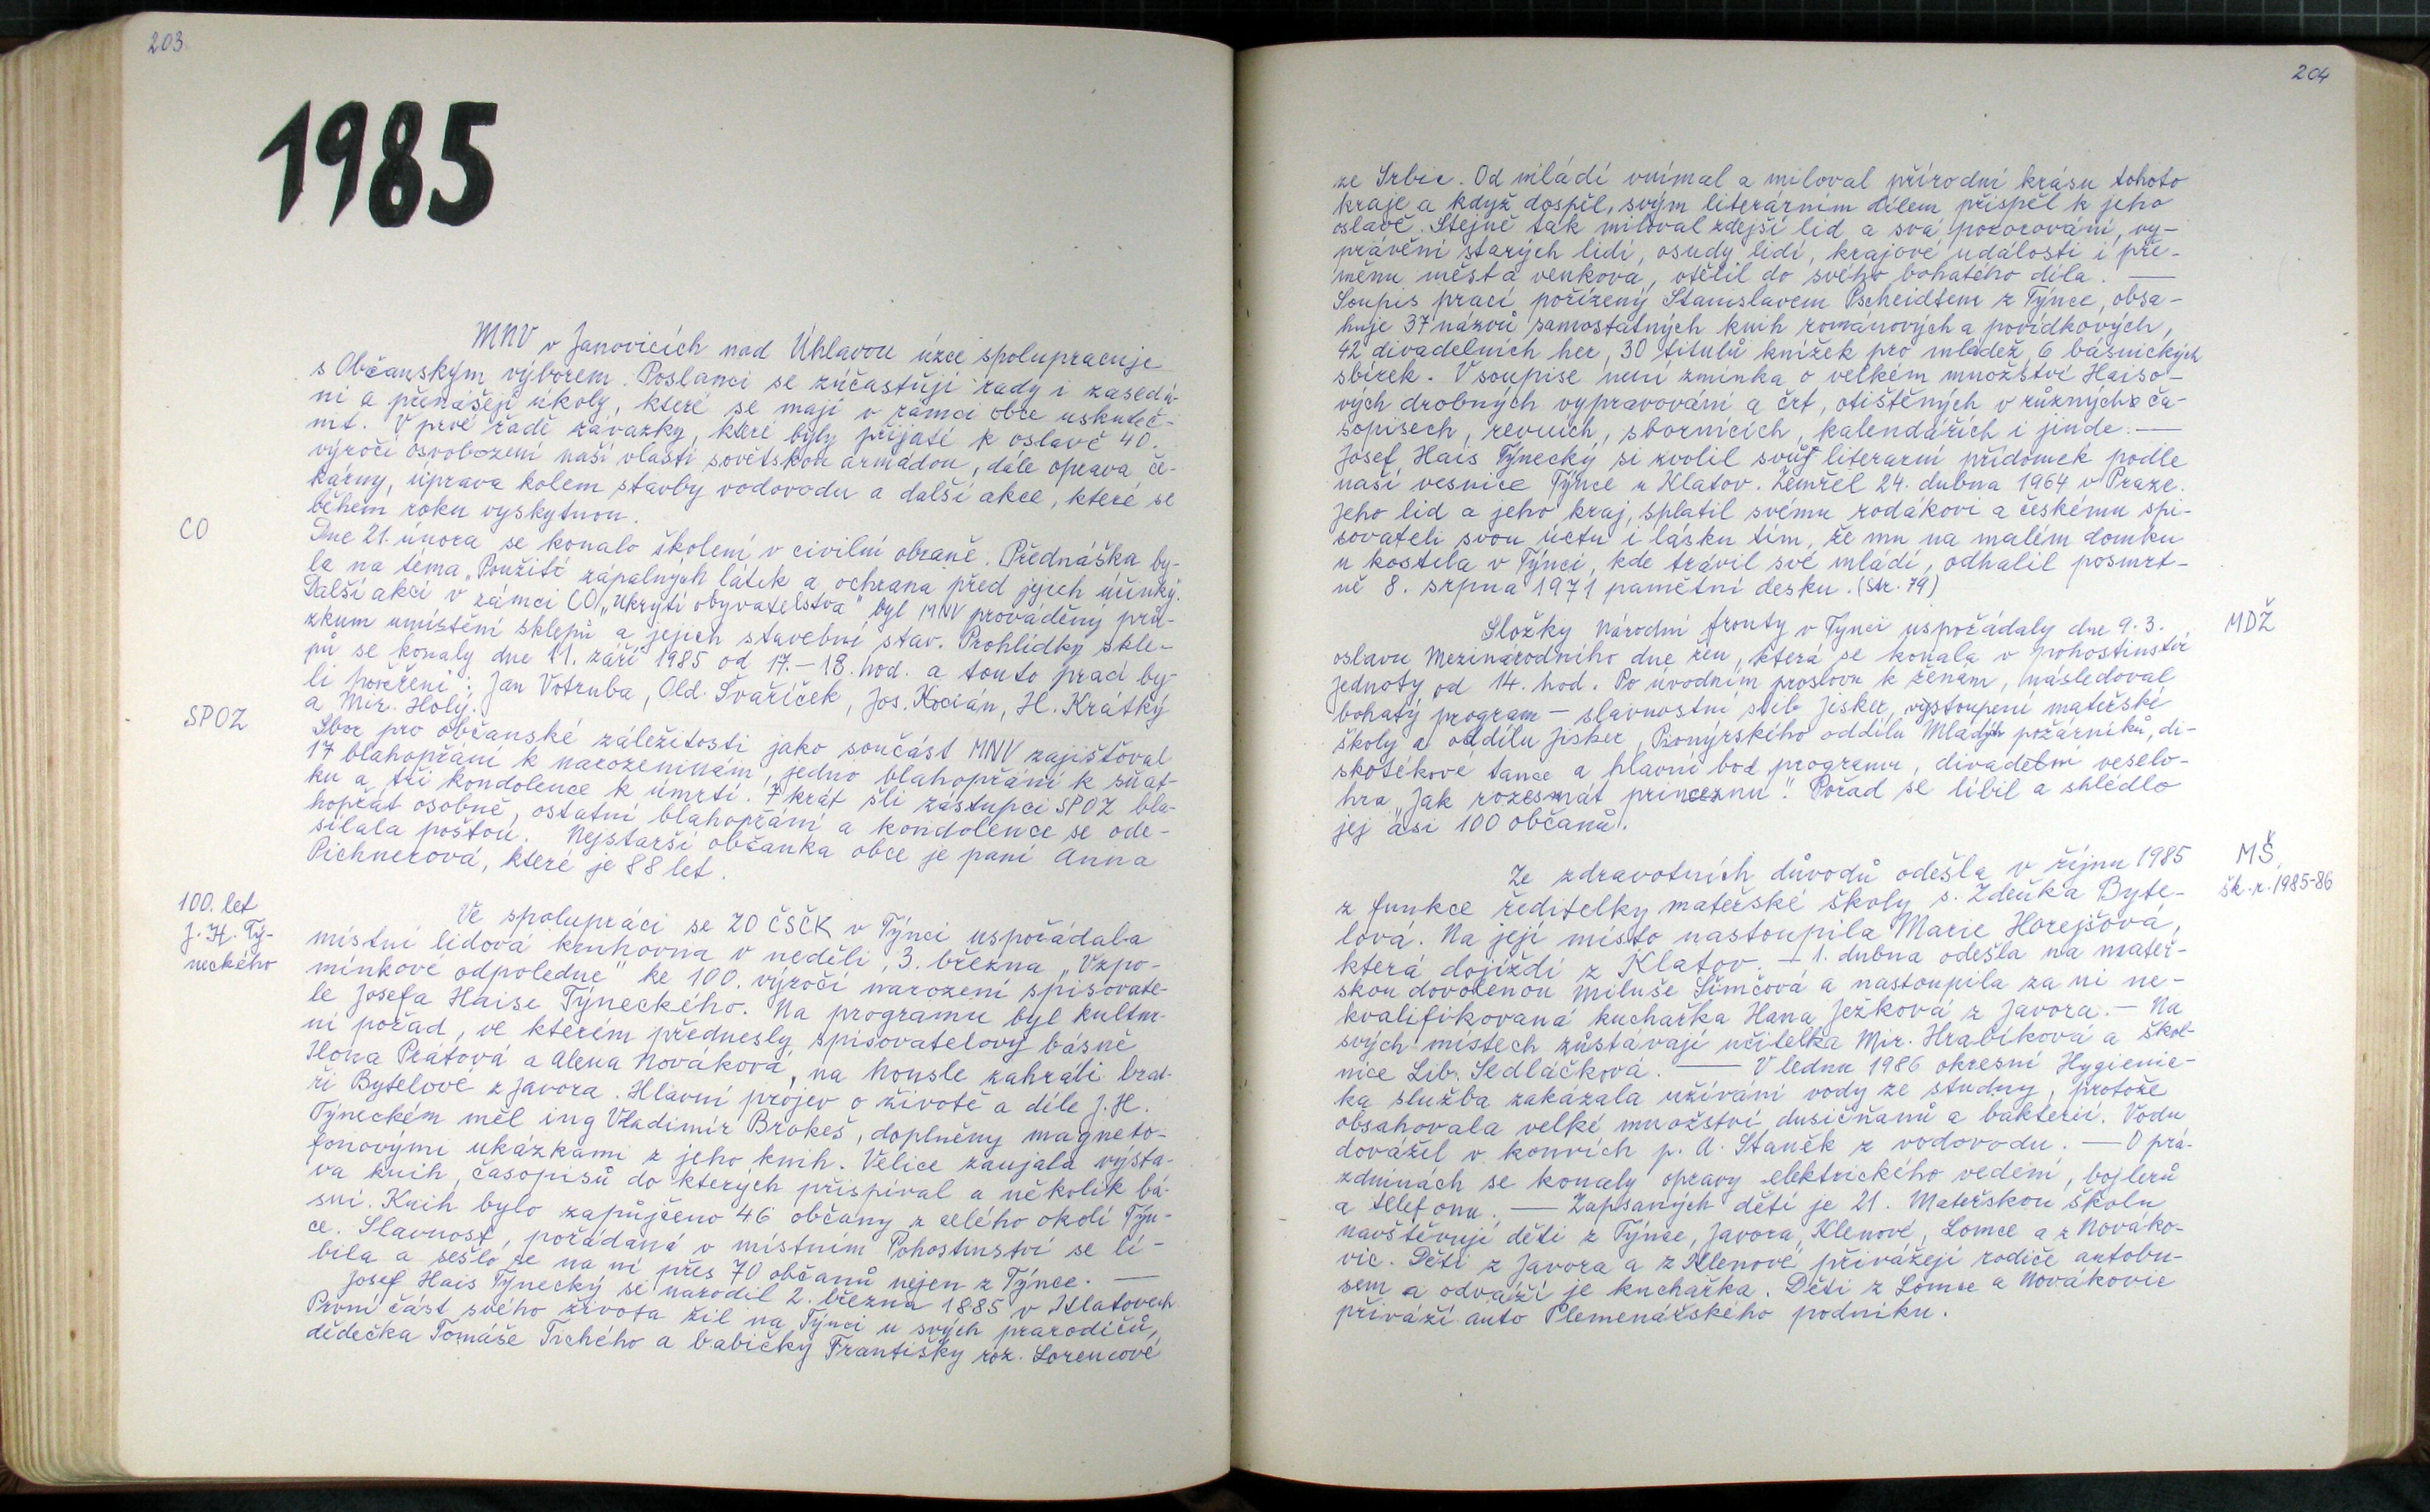 203
1985
MNV v Janovicích nad Úhlavou úzce spolupracuje
s Občanským výborem. Poslanci se zúčastňují rady i zasedá-
ní a přenášejí úkoly, které se mají v rámci obce uskuteč-
nit. V prvé řadě závazky, které byly přijaté k oslavě 40.
výročí osvobození naší vlasti sovětskou armádou, dále oprava če-
kárny, úprava kolem stavby vodovodu a další akce, které se
během roku vyskytnou.
CO
Dne 21. února se konalo školení v civilní obraně. Přednáška by-
la na téma „Použití zápalných látek a ochrana před jejich účinky.
Další akcí v rámci CO „Ukrytí obyvatelstva" byl MNV prováděný prů-
zkum umístění sklepů a jejich stavební stav. Prohlídky skle-
pů se konaly dne 11. září 1985 od 17.-18. hod. a touto prací by-
li pověřeni: Jan Votruba, Old. Švaříček, Jos. Kocián, H. Krátký
a Mir. Holý.
SPOZ
Sbor pro občanské záležitosti jako součást MNV zajišťoval
17 blahopřání k narozeninám, jedno blahopřání k sňat-
ku a tři kondolence k úmrtí. 7 krát šli zástupci SPOZ bla-
hopřát osobně, ostatní blahopřání a kondolence se ode-
sílala poštou. Nejstarší občanka obce je paní Anna
Pichnerová, které je 88 let.
100. let
J. H. Tý-
neckého
Ve spolupráci se ZO ČSČK v Týnci uspořádala
místní lidová knihovna v neděli, 3. března „Vzpo-
mínkové odpoledne" ke 100. výročí narození spisovate-
le Josefa Haise Týneckého. Na programu byl kultur-
ní pořad, ve kterém přednesly spisovatelovy básně
Ilona Prátová a Alena Nováková, na housle zahráli brat-
ři Bytelové z Javora. Hlavní projev o životě a díle J. H.
Týneckém měl ing Vladimír Brokeš, doplněny magneto-
fonovými ukázkami z jeho knih. Velice zaujala výsta-
va knih, časopisů do kterých přispíval a několik bá-
sní. Knih bylo zapůjčeno 46 občany z celého okolí Týn-
ce. Slavnost, pořádaná v místním Pohostinství se lí-
bila a sešlo se na ní přes 70 občanů nejen z Týnce. —
Josef Hais Týnecký se narodil 2. března 1885 v Klatovech
První část svého života žil na Týnci u svých prarodičů,
dědečka Tomáše Tichého a babičky Františky roz. Lorencové
204
ze Srbic. Od mládí vnímal a miloval přírodní krásu tohoto
kraje a když dospěl, svým literárním dílem přispěl k jeho
oslavě. Stejně tak miloval zdejší lid a svá pozorování, vy-
právění starých lidí, osudy lidí, krajové události i pře-
měnu města venkova, vtělil do svého bohatého díla. —
Soupis prací pořízený Stanislavem Pscheidtem z Týnce, obsa-
huje 37 názvů samostatných knih románových a povídkových,
42 divadelních her, 30 titulů knížek pro mládež, 6 básnických
sbírek. V soupise není zmínka o velkém množství Haiso-
vých drobných vypravování a črt, otištěných v různých ča-
sopisech, revuích, sbornících, kalendářích i jinde. —
Josef Hais Týnecký si zvolil svůj literarní přídomek podle
naší vesnice Týnce u Klatov. Zemřel 24. dubna 1964 v Praze.
Jeho lid a jeho kraj, splatil svému rodákovi a českému spi-
sovateli svou úctu i lásku tím, že mu na malém domku
u kostela v Týnci, kde trávil své mládí, odhalil posmrt-
ně 8. srpna 1971 pamětní desku. (str. 79)
MDŽ
Složky Národní fronty v Týnci uspořádaly dne 9. 3.
oslavu Mezinárodního dne žen, která se konala v pohostinství
Jednoty od 14. hod. Po úvodním proslovu k ženám, následoval
bohatý program – slavnostní slib Jisker, vystoupení mateřské
školy a oddílu Jisker, Pionýrského oddílu Mladých požárníků, di-
skotékové tance a hlavní bod programu, divadelní veselo-
hra „Jak rozesmát princeznu". Pořad se líbil a shlédlo
jej asi 100 občanů.
MŠ
šk. r. 1985-86
Ze zdravotních důvodů odešla v říjnu 1985
z funkce ředitelky mateřské školy s. Zdeňka Byte-
lová. Na její místo nastoupila Marie Horejšová,
která dojíždí z Klatov. – 1. dubna odešla na mateř-
skou dovolenou Miluše Šimčová a nastoupila za ni ne-
kvalifikovaná kuchařka Hana Ježková z Javora. – Na
svých místech zůstávají učitelka Mir. Hrabíková a škol-
nice Lib. Sedláčková. — V lednu 1986 okresní Hygienic-
ka služba zakázala užívání vody ze studny, protože
obsahovala velké množství dusičňanů a bakterií. Vodu
dovážel v konvích p. A. Staněk z vodovodu. — O prá-
zdninách se konaly opravy elektrického vedení, bojlerů
a telefonu. — Zapsaných dětí je 21. Mateřskou školu
navštěvují děti z Týnce, Javora, Klenové, Lomce a z Nováko-
vic. Děti z Javora a z Klenové přivážejí rodiče autobu-
sem a odváží je kuchařka. Děti z Lomce a Novákovic
přiváží auto Plemenářského podniku.